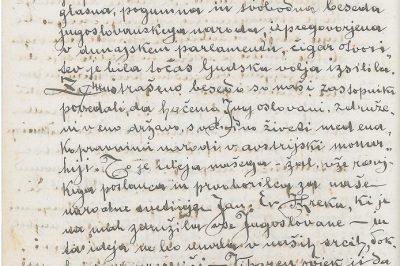 glasna, pogumna in svobodna beseda
jugoslovanskega naroda, izpregovorjena
v dunajskem parlamentu, čigar otvori-
tev je bila točas ljudska volja izsilila.
neustrašeno besedo so naši zastopniki
povedali, da hočemo Jugoslovani, združe-
ni v eno državo, svobodno živeti med ena-
kopravnimi narodi v avstrijski monar-
hiji. To je ideja našega – žal, vže
kega poslanca in prvoboritelja za naše
narodne svetinje Jan. Ev. Kreka, ki je
na mah združila vse Jugoslovane –
ta ideja ne le v naših srcih,